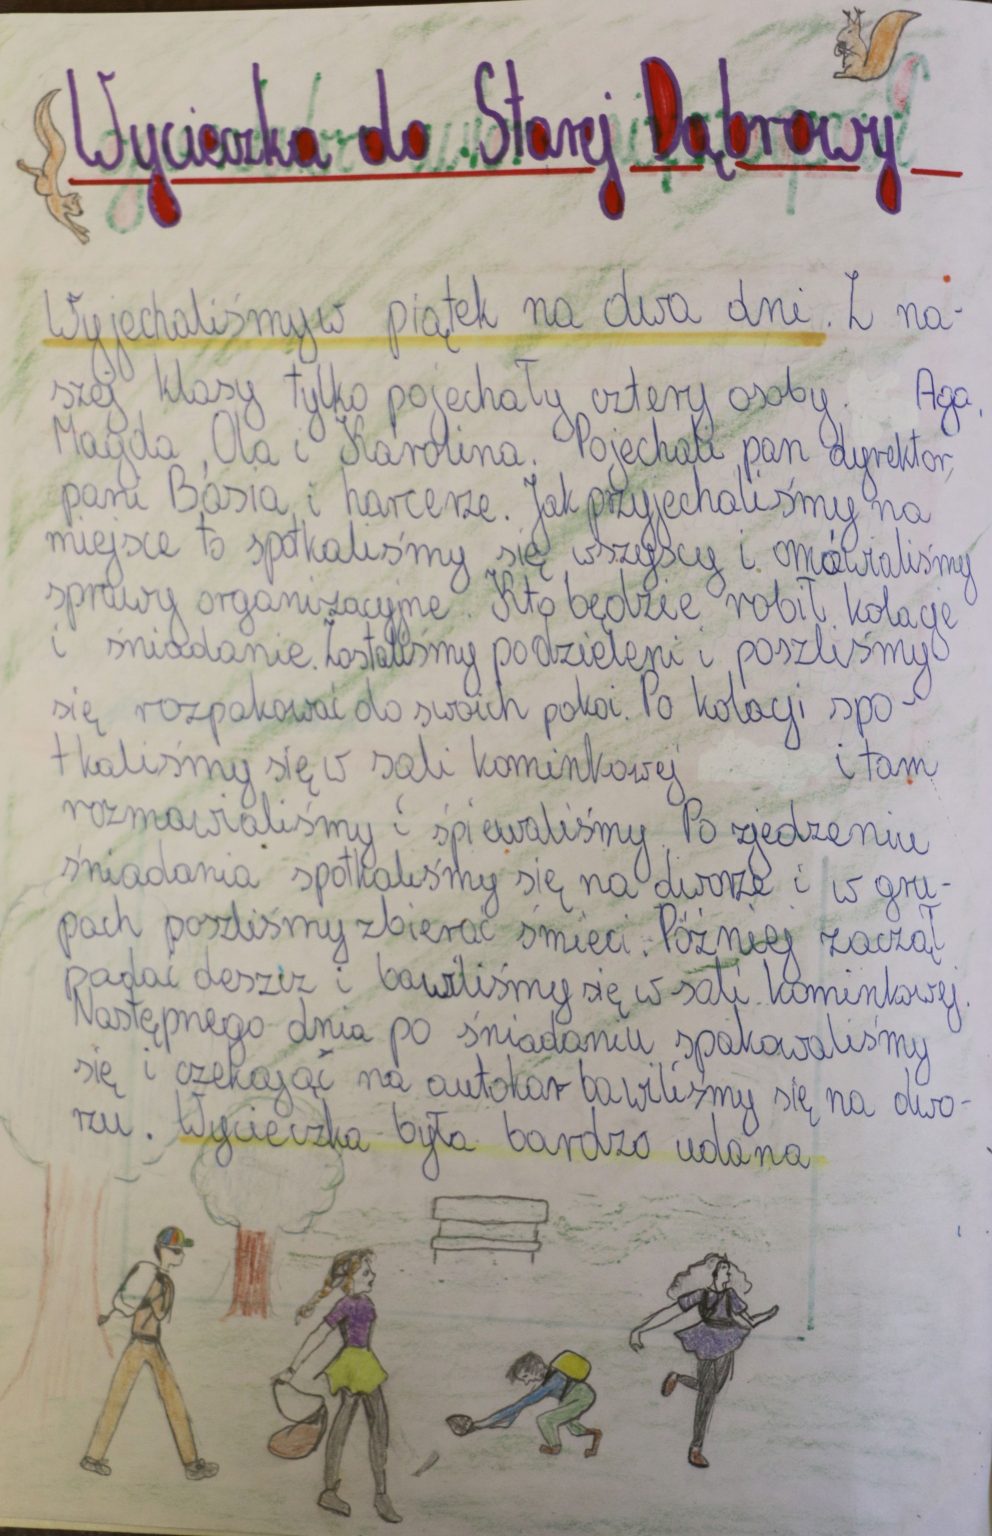 Wycieczka do Starej Dąbrowy
Wyjechaliśmy w piątek na dwa dni. Z na-
szej klasy tylko pojechały cztery osoby. Aga,
Magda, Ola i Karolina. Pojechali pan dyrektor,
pani Basia i harcerze. Jak przyjechaliśmy na
miejsce to spotkaliśmy się wszyscy i omówialiśmy
sprawy organizacyjne. Kto będzie robił kolację
i śniadanie. Zostaliśmy podzieleni i poszliśmy
się rozpakować do swoich pokoi. Po kolacji spo-
tkaliśmy się w sali kominkowej i tam
rozmawialiśmy i śpiewaliśmy. Po zjedzeniu
śniadania spotkaliśmy się na dworze i w gru-
pach poszliśmy zbierać śmieci. Później zaczął
padać deszcz i bawiliśmy się w sali kominkowej.
Następnego dnia po śniadaniu spakowaliśmy
się i czekając na autokar bawiliśmy się na dwo-
rzu. Wycieczka była bardzo udana